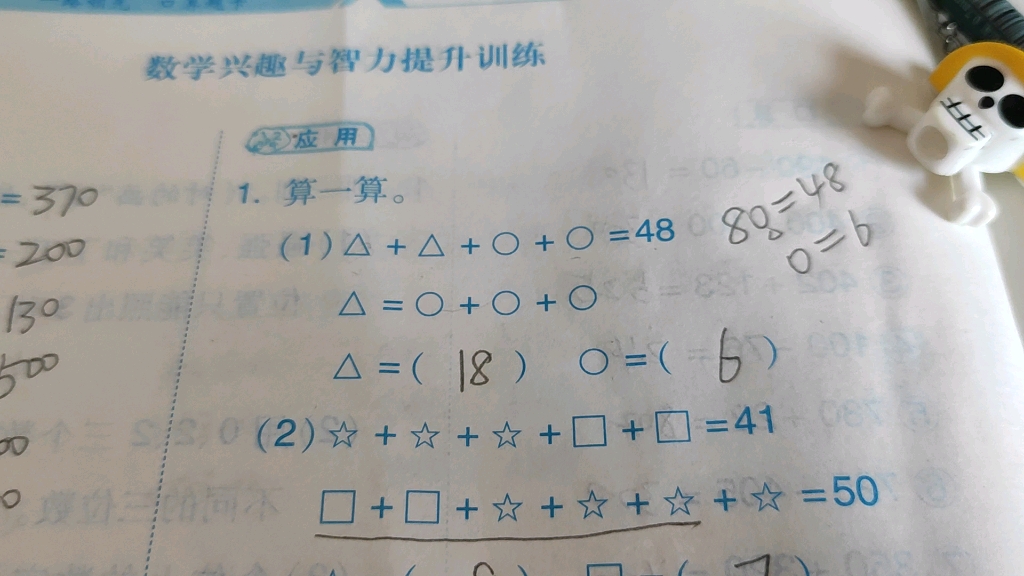 数学兴趣与智力提升训练
应用
= 370
= 200
130
500
00
0
1. 算一算。
(1) △ + △ + ○ + ○ = 48
8○=48
○=6
△ = ○ + ○ + ○
△ = ( 18 ) ○ = ( 6 )
(2) ☆ + ☆ + ☆ + □ + □ = 41
□ + □ + ☆ + ☆ + ☆ + ☆ = 50